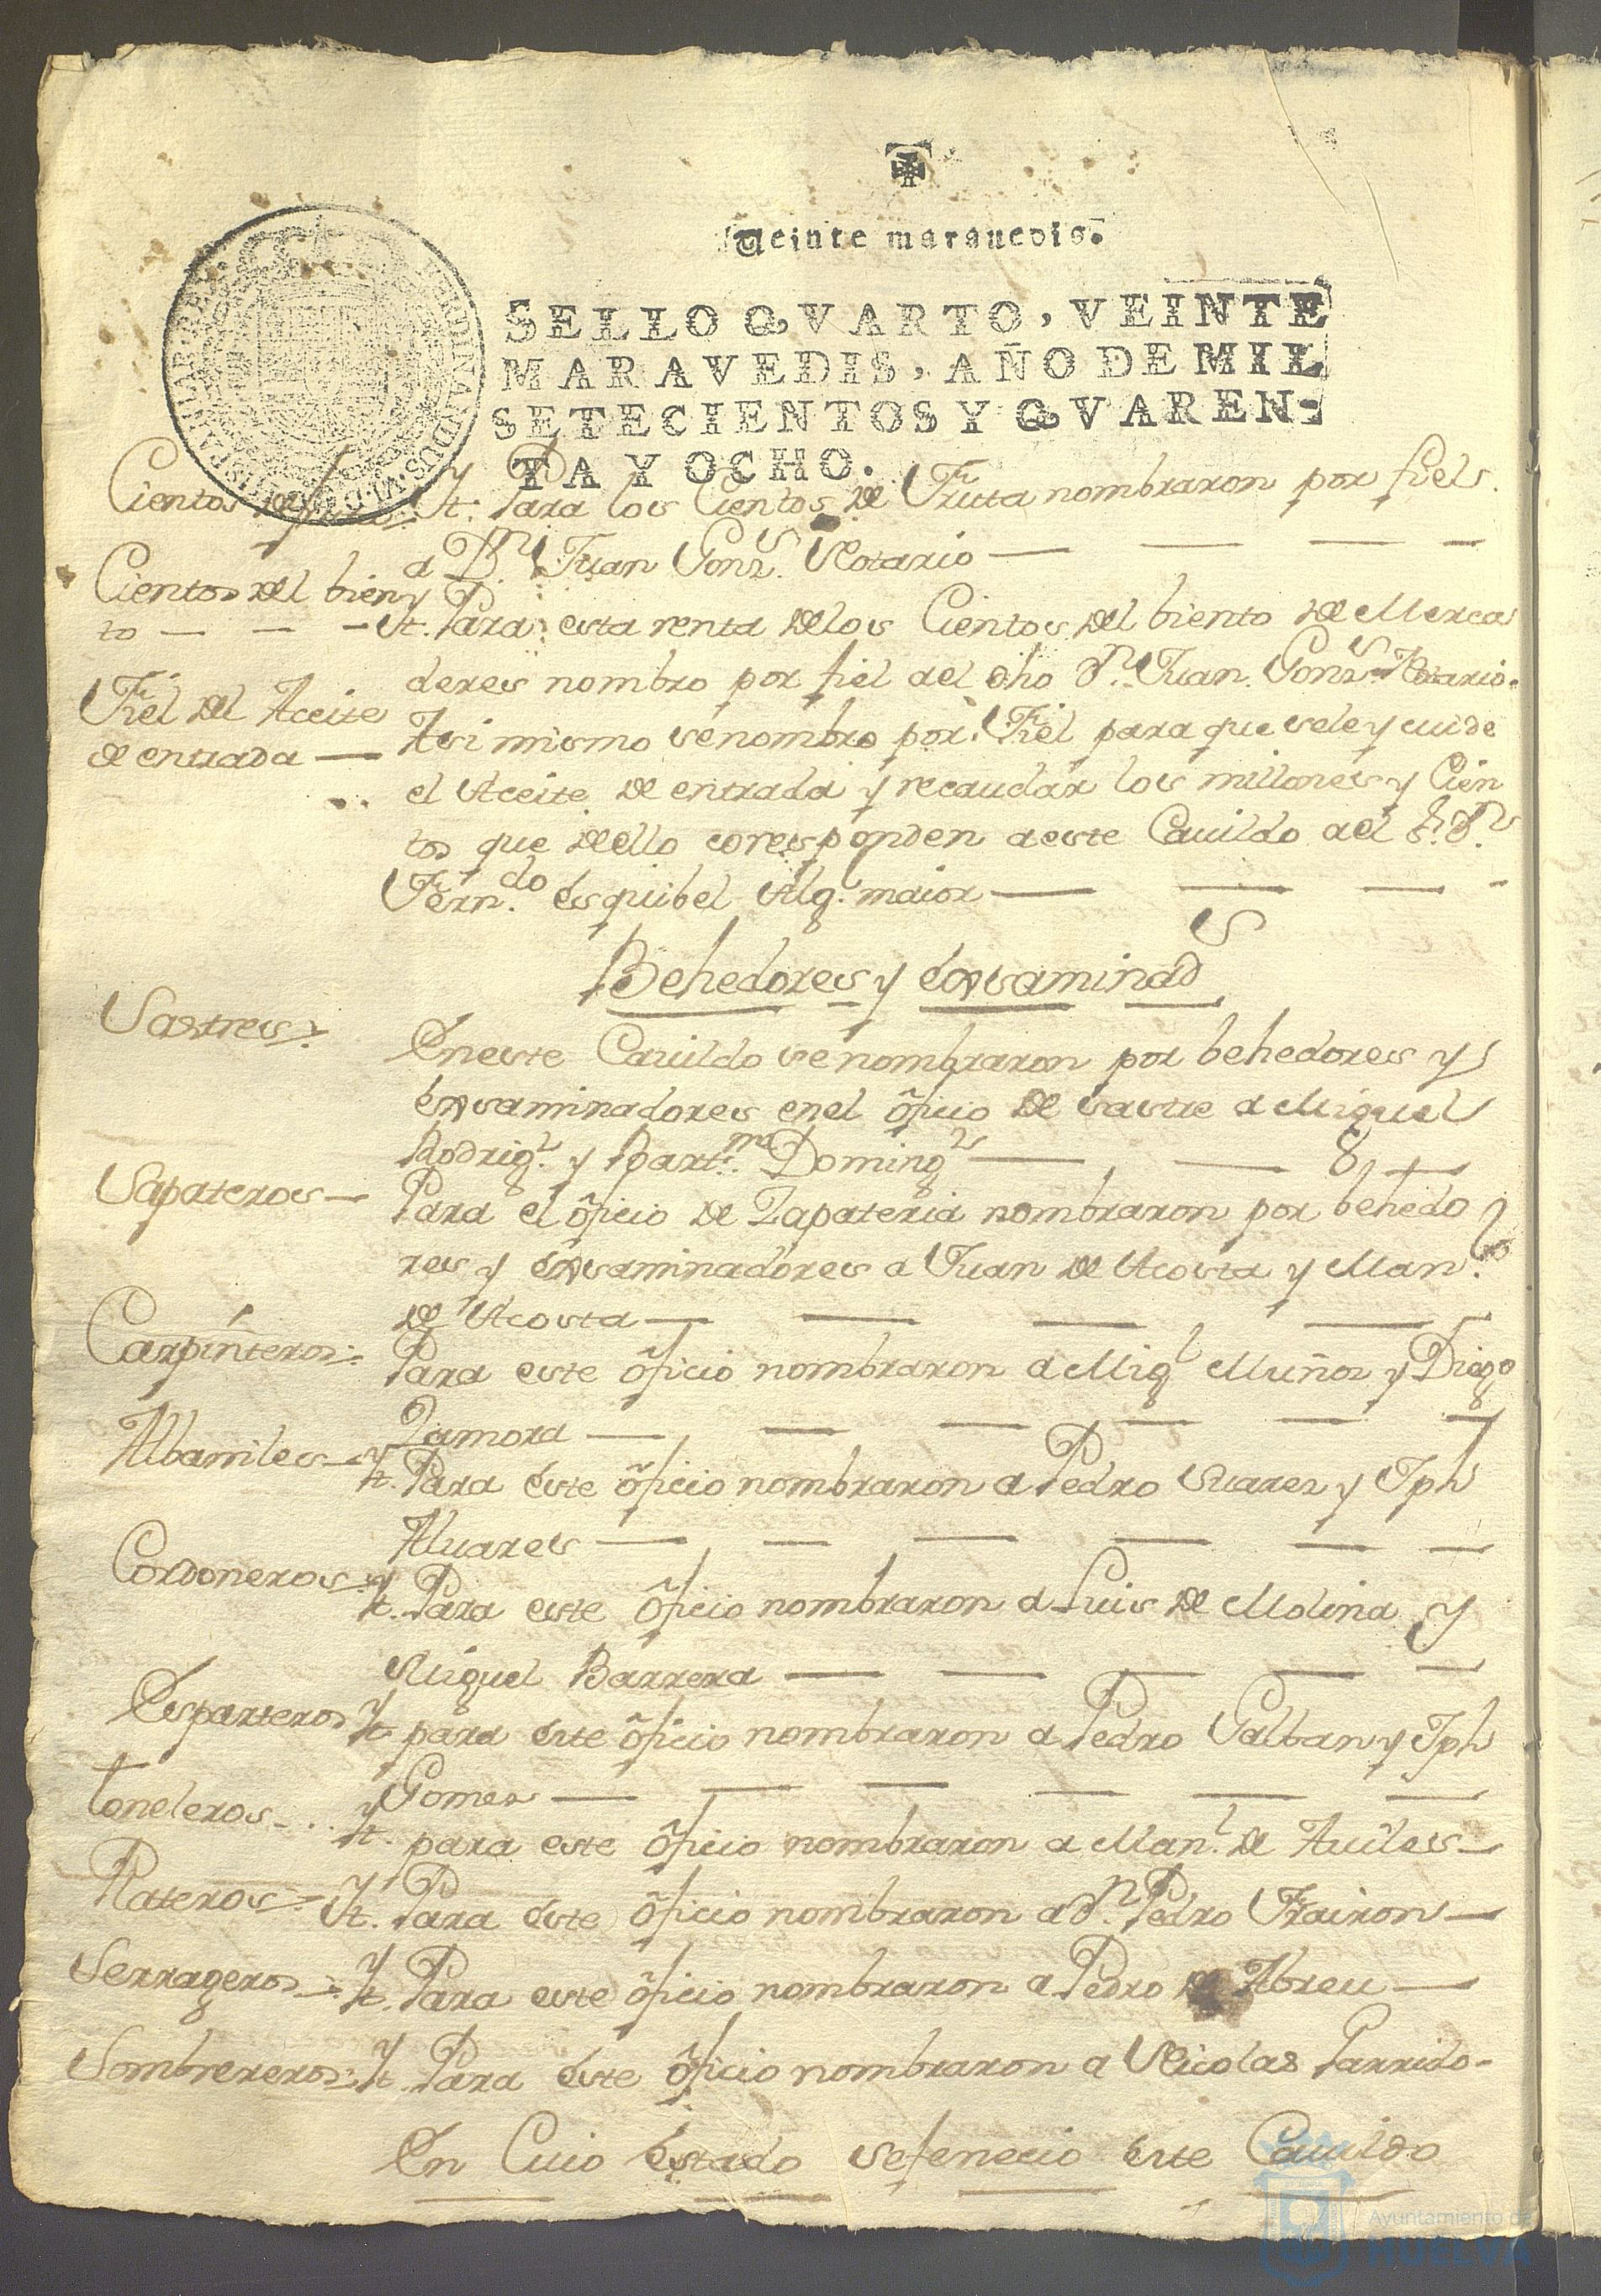 Veinte marauedis.
SELLO QVARTO, VEINTE
MARAVEDIS, AÑO DE MIL
SETECIENTOS Y QVAREN-
TA Y OCHO.
Cientos de fruta
Yt. Para los Cientos de Fruta nombraron por fiels.
a Dn. Juan Gonz.s Notario
Cientos del bien
to
Yt. Para esta renta delos Cientos del biento de Merca
deres nombro por fiel ael dho Dn. Juan Gonz.s Notario.
Fiel del Aceite
de entrada
Asi mismo se nombro por Fiel para que sele y cuide
el Aceite de entrada y recaudar los millones y Cien
tos que dello coresponden aeste Cauildo ael Sr. Dn
Fern.do Esquibel Alg.l maior
Behedores y Exsaminad.s
Sastres
Eneste Cauildo se nombraron por behedores y
Exsaminadores enel oficio de sastre a Miguel
Rodrig.z y Bart.me Doming.z
Sapateros
Para el oficio de Zapateria nombraron por behedo
res y exsaminadores a Juan de Acosta y Man.
de Acosta
Carpinteros
Para este oficio nombraron a Mig.l Muñoz y Diego
Zamora
Albamiles
Yt. Para este oficio nombraron a Pedro Suarez y Jph
Aluares
Cordoneros
Yt. Para este oficio nombraron a Luis de Molina y
Miguel Barrera
Esparteros
Yt. para este oficio nombraron a Pedro Galban y Jph
Gomez
toneleros
Yt. para este oficio nombraron a Man.l de Auiles
Plateros
Yt. Para este oficio nombraron a Dn. Pedro Frairon
Serrageros
Yt. Para este oficio nombraron a Pedro de Abreu
Sombrereros
Yt. Para este oficio nombraron a Nicolas Parrido
En Cuio Estado se fenecio este Cauildo
Ayuntamiento de
HUELVA